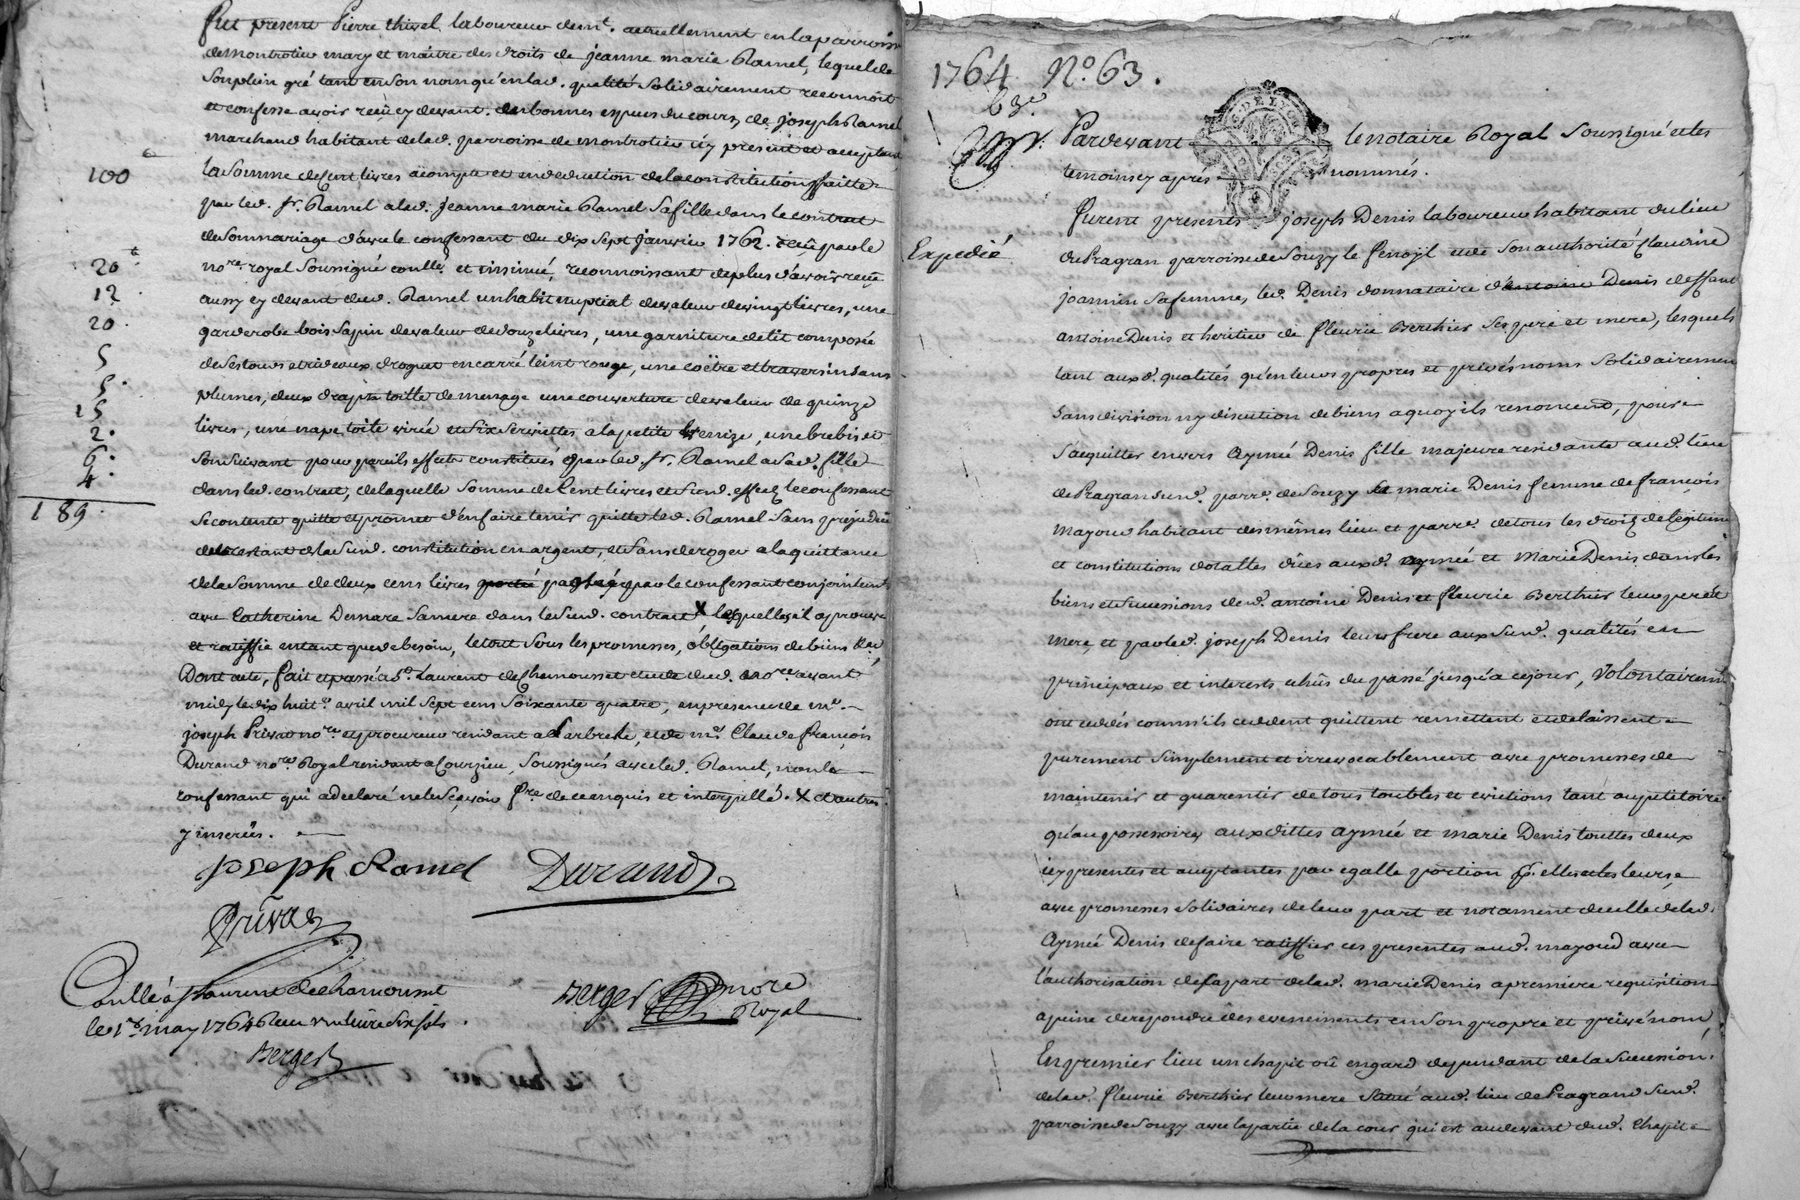 fut present Pierre thivel laboureur dem.t actuellement en la parroisse
de montrotier mary et maitre des droits de jeanne marie Ramel, lequel de
son plein gré tant en son nom qu'en lad. qualité solidairement reconnoit
et confesse avoir reçû cy devant des bonnes especes du cours de joseph Ramel
marchand habitant delad. parroisse de montrotier icy present et acceptant
100
la somme de cent livres acompte et en deduction de la constitution faitte
par led. sr. Ramel a lad. jeanne marie Ramel sa fille dans le contrat
de son mariage d'avec le confessant du dix sept janvier 1762. reçû par le
20
no.re royal soussigné contllé et insinué, reconnoissant de plus d'avoir reçu
12
aussy cy devant dud. Ramel un habit nuptial de valeur de vingt livres, une
20.
garderobe bois sapin de valeur de douze livres, une garniture de lit composée
5
de ses tours et rideaux droguet en carré teint rouge, une coëtre et traversin sans
5.
plumes, deux draps toille de menage une couverture de valeur de quinze
15
2.
livres, une nape toile cirée et six serviettes a la petite venize, une brebis et
6.
son suivant pour pareils effets constitués par led. sr. Ramel a sad. fille
4.
dans led. contrat, de laquelle somme de cent livres et susd. effets le confessant
189.
se contente quitte et promet d'en faire tenir quitte led. Ramel sans prejudice
du restant de la susd. constitution en argent, et sans deroger a la quittance
de la somme de deux cens livres passée par le confessant conjointement
avec Catherine Demare sa mere dans le susd. contract X, lesquelles il aprouve
et ratiffie en tant que de besoin, le tout sous les promesses, obligations de biens &a.
Dont acte, fait et passé a St. Laurent de Chamousset etude dud. no.re avant
midy le dix huit.e avril mil sept cens soixante quatre, en presence de me.
joseph Privat no.re et procureur residant a Larbresle, et de me. Claude françois
Durand no.re Royal residant a Courzieu, soussignés avec led. Ramel, non le
confessant qui a declaré ne le sçavoir fre. de ce enquis et interpellé. X et autres
y inserées.
joseph Ramel Durand
Privat
Contllé à St Laurent de chamousset
le 1er may 1764 Reçu
Berger
Berger nore
Royal
1764 No. 63.
23e.
Pardevant le notaire Royal soussigné et les
temoins cy aprés nommés.
furent presents joseph Denis laboureur habitant du lieu
Expedié
du Pragran parroisse de Souzy le fenoÿl et de son authorité Claudine
joannin sa femme, led. Denis donnataire d'antoine Denis deffunt
antoine Denis et heritier de fleurie Berthier ses pere et mere, lesquels
tant auxd. qualités qu'en leurs propres et privés noms solidairement
sans division ny discution de biens a quoy ils renoncent, pour
s'acquitter envers aymé Denis fille majeure residante aud. lieu
de Pragran susd. parre. de Souzy et marie Denis femme de françois
mayoud habitant des mêmes lieu et parre. de tous les droits de legitime
et constitutions dotalles dûes auxd. aymée et Marie Denis dans les
biens et successions desd. antoine Denis et fleurie Berthier leurs pere et
mere, et par led. joseph Denis leur frere aux susd. qualités en
principaux et interests echûs du passé jusqu'a ce jour, Volontairement
ont cedés comm'ils cedent quittent remettent et delaissent
purement simplement et irrevocablement avec promesses de
maintenir et guarentir de tous troubles et evictions tant au petitoire
qu'au possessoires aux dittes aymée et marie Denis touttes deux
icy presentes et acceptantes par egalle portion pr. elles et les leurs
avec promesses solidaires de leur part et notament de celle delad.
aymée Denis de faire ratiffier ces presentes aud. mayoud avec
l'authorisation de sa part delad. marie Denis a premiere requisition
a peine de repondre des evenements en son propre et privé nom,
En premier lieu un chapit ou engard dependant de la succession
delad. fleurie Berthier leur mere situé aud. lieu de Pragrand susd.
parroisse de Souzy avec la partie de la cour qui est au devant dud. chapit